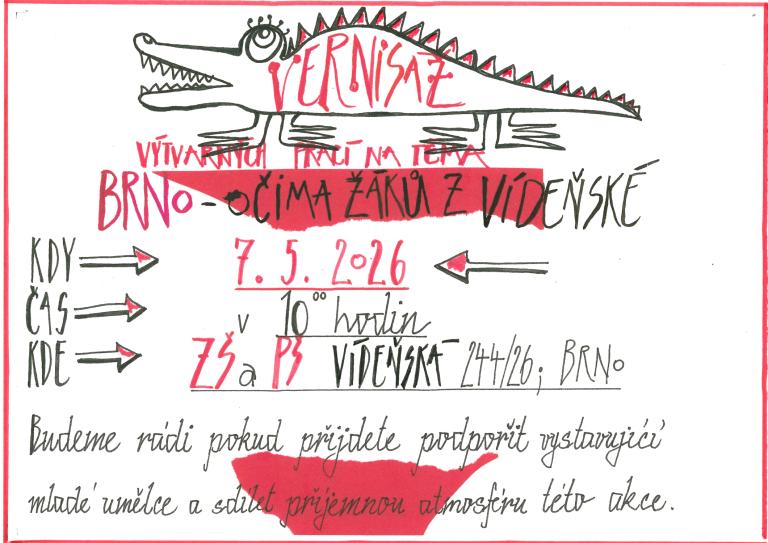 VERNISÁŽ
VÝTVARNÝCH PRACÍ NA TÉMA
BRNo - oČIMA ŽÁKŮ Z VÍDEŇSKÉ
KDY 7. 5. 2026
ČAS v 10⁰⁰ hodin
KDE ZŠ a PŠ VÍDEŇSKÁ 244/26, BRNo
Budeme rádi pokud přijdete podpořit vystavující
mladé umělce a sdílet příjemnou atmosféru této akce.